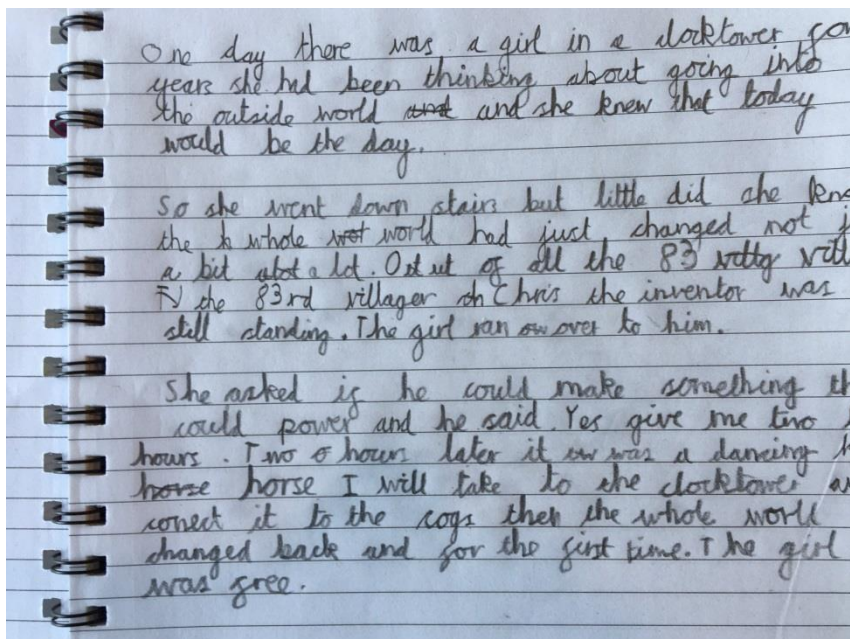 One day there was a girl in a clocktower for
years she had been thinking about going into
the outside world and she knew that today
would be the day.
So she went down stairs but little did she kno
the h whole world had just changed not j
a bit a lot. Out of all the 83 vill
the 83rd villager Chris the inventor was
still standing. The girl ran over to him.
She asked if he could make something th
could power and he said. Yes give me two
hours. Two hours later it was a dancing h
horse horse I will take to the clocktower a
conect it to the cogs then the whole world
changed back and for the first time. The girl
was free.